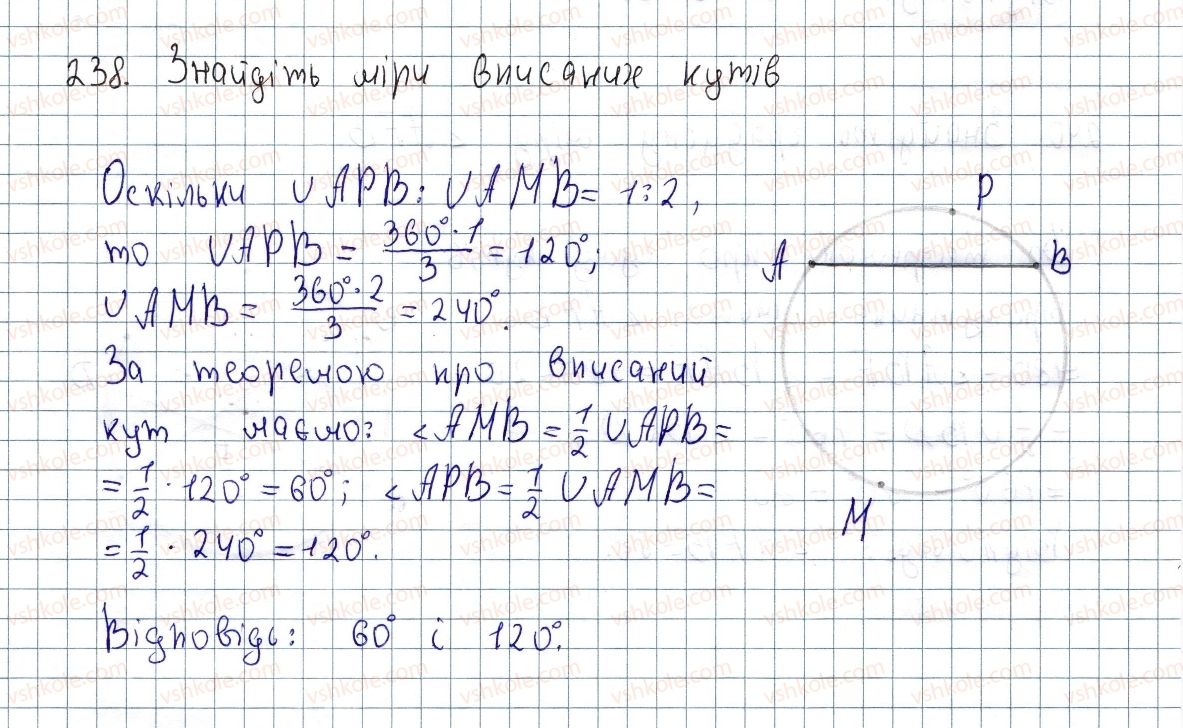 238. Знайдіть міри вписаних кутів
Оскільки ∪APB : ∪AMB = 1:2,
то ∪APB = 360°·1/3 = 120°;
∪AMB = 360°·2/3 = 240°.
За теоремою про вписаний
кут маємо: ∠AMB = 1/2 ∪APB =
= 1/2 · 120° = 60°; ∠APB = 1/2 ∪AMB =
= 1/2 · 240° = 120°.
Відповідь: 60° і 120°.
P
A
B
M
vshkole.com